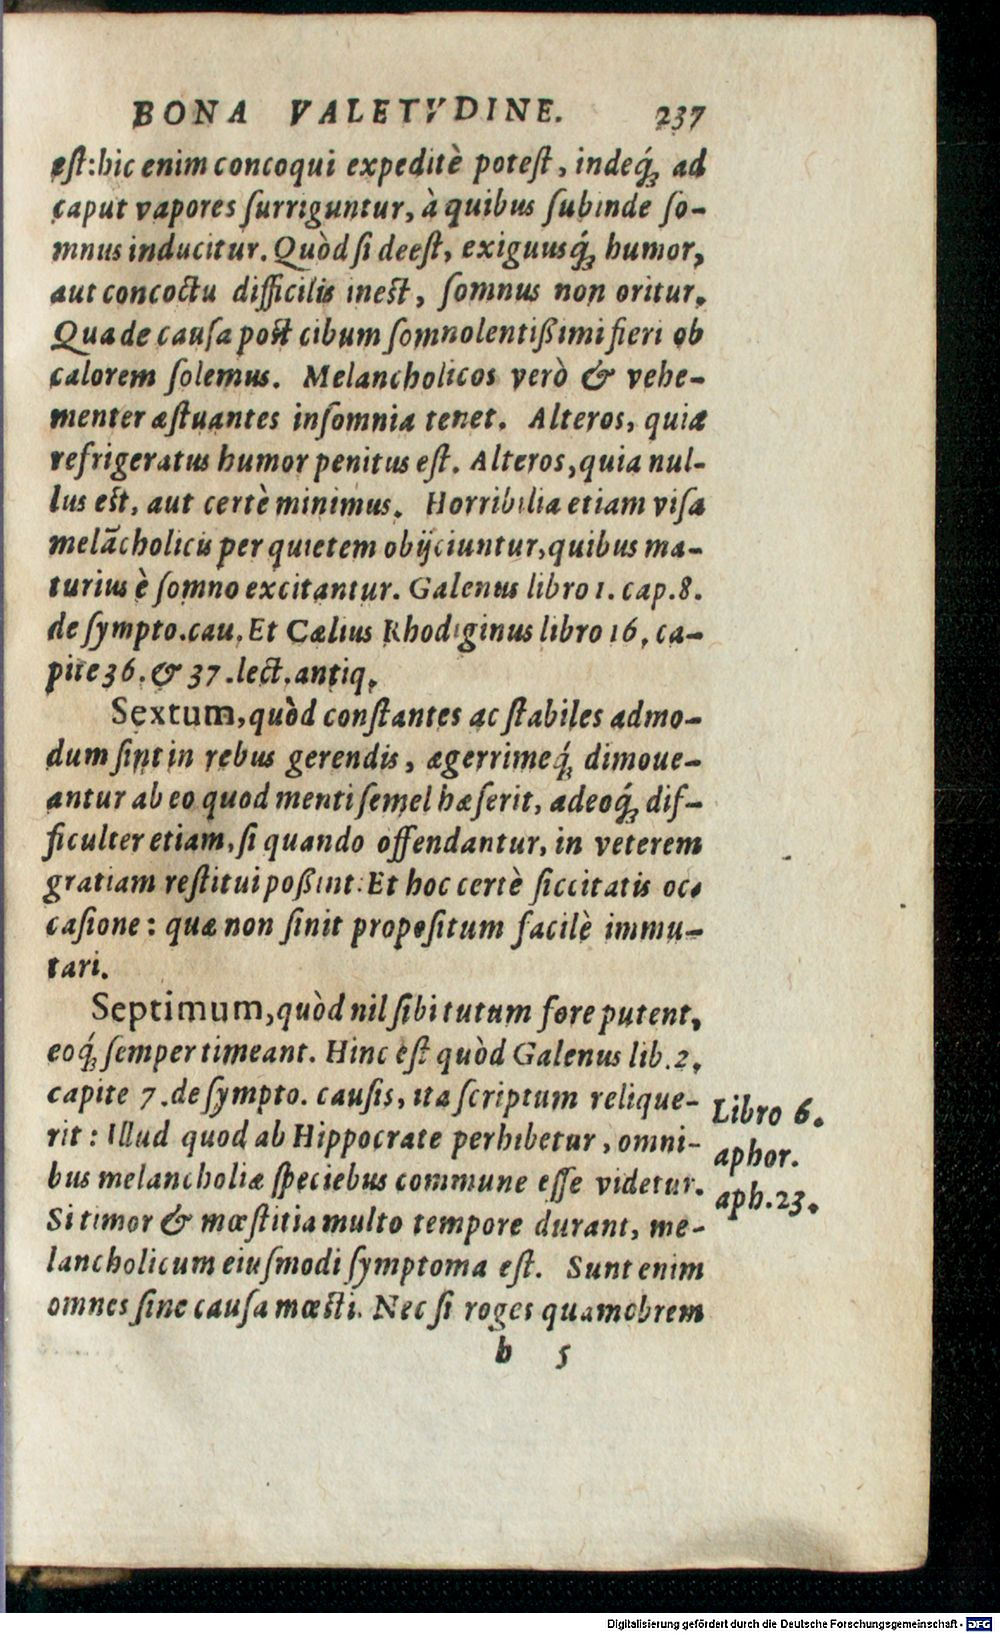 BONA VALETVDINE. 237
est:hic enim concoqui expeditè potest, indeq́; ad
caput vapores surriguntur, à quibus subinde so-
mnus inducitur. Quòd si deest, exiguusq́; humor,
aut concoctu difficilis inest, somnus non oritur.
Qua de causa post cibum somnolentißimi fieri ob
calorem solemus. Melancholicos verò & vehe-
menter æstuantes insomnia tenet. Alteros, quia
refrigeratus humor penitus est. Alteros, quia nul-
lus est, aut certè minimus. Horribilia etiam visa
melācholicis per quietem obijciuntur, quibus ma-
turius è somno excitantur. Galenus libro 1. cap.8.
de sympto.cau. Et Cælius Rhodiginus libro 16, ca-
pite 36. & 37.lect.antiq.
Sextum, quòd constantes ac stabiles admo-
dum sint in rebus gerendis, ægerrimeq́; dimoue-
antur ab eo quod menti semel hæserit, adeoq́; dif-
ficulter etiam, si quando offendantur, in veterem
gratiam restitui poßint. Et hoc certè siccitatis oc-
casione: quæ non sinit propositum facilè immu-
tari.
Septimum, quòd nil sibi tutum fore putent,
eoq́; semper timeant. Hinc est quòd Galenus lib.2.
capite 7.de sympto. causis, ita scriptum relique-
rit: Illud quod ab Hippocrate perhibetur, omni-
bus melancholiæ speciebus commune esse videtur.
Si timor & mœstitia multo tempore durant, me-
lancholicum eiusmodi symptoma est. Sunt enim
omnes sine causa mœsti. Nec si roges quamobrem
b 5
Libro 6.
aphor.
aph.23.
Digitalisierung gefördert durch die Deutsche Forschungsgemeinschaft - DFG